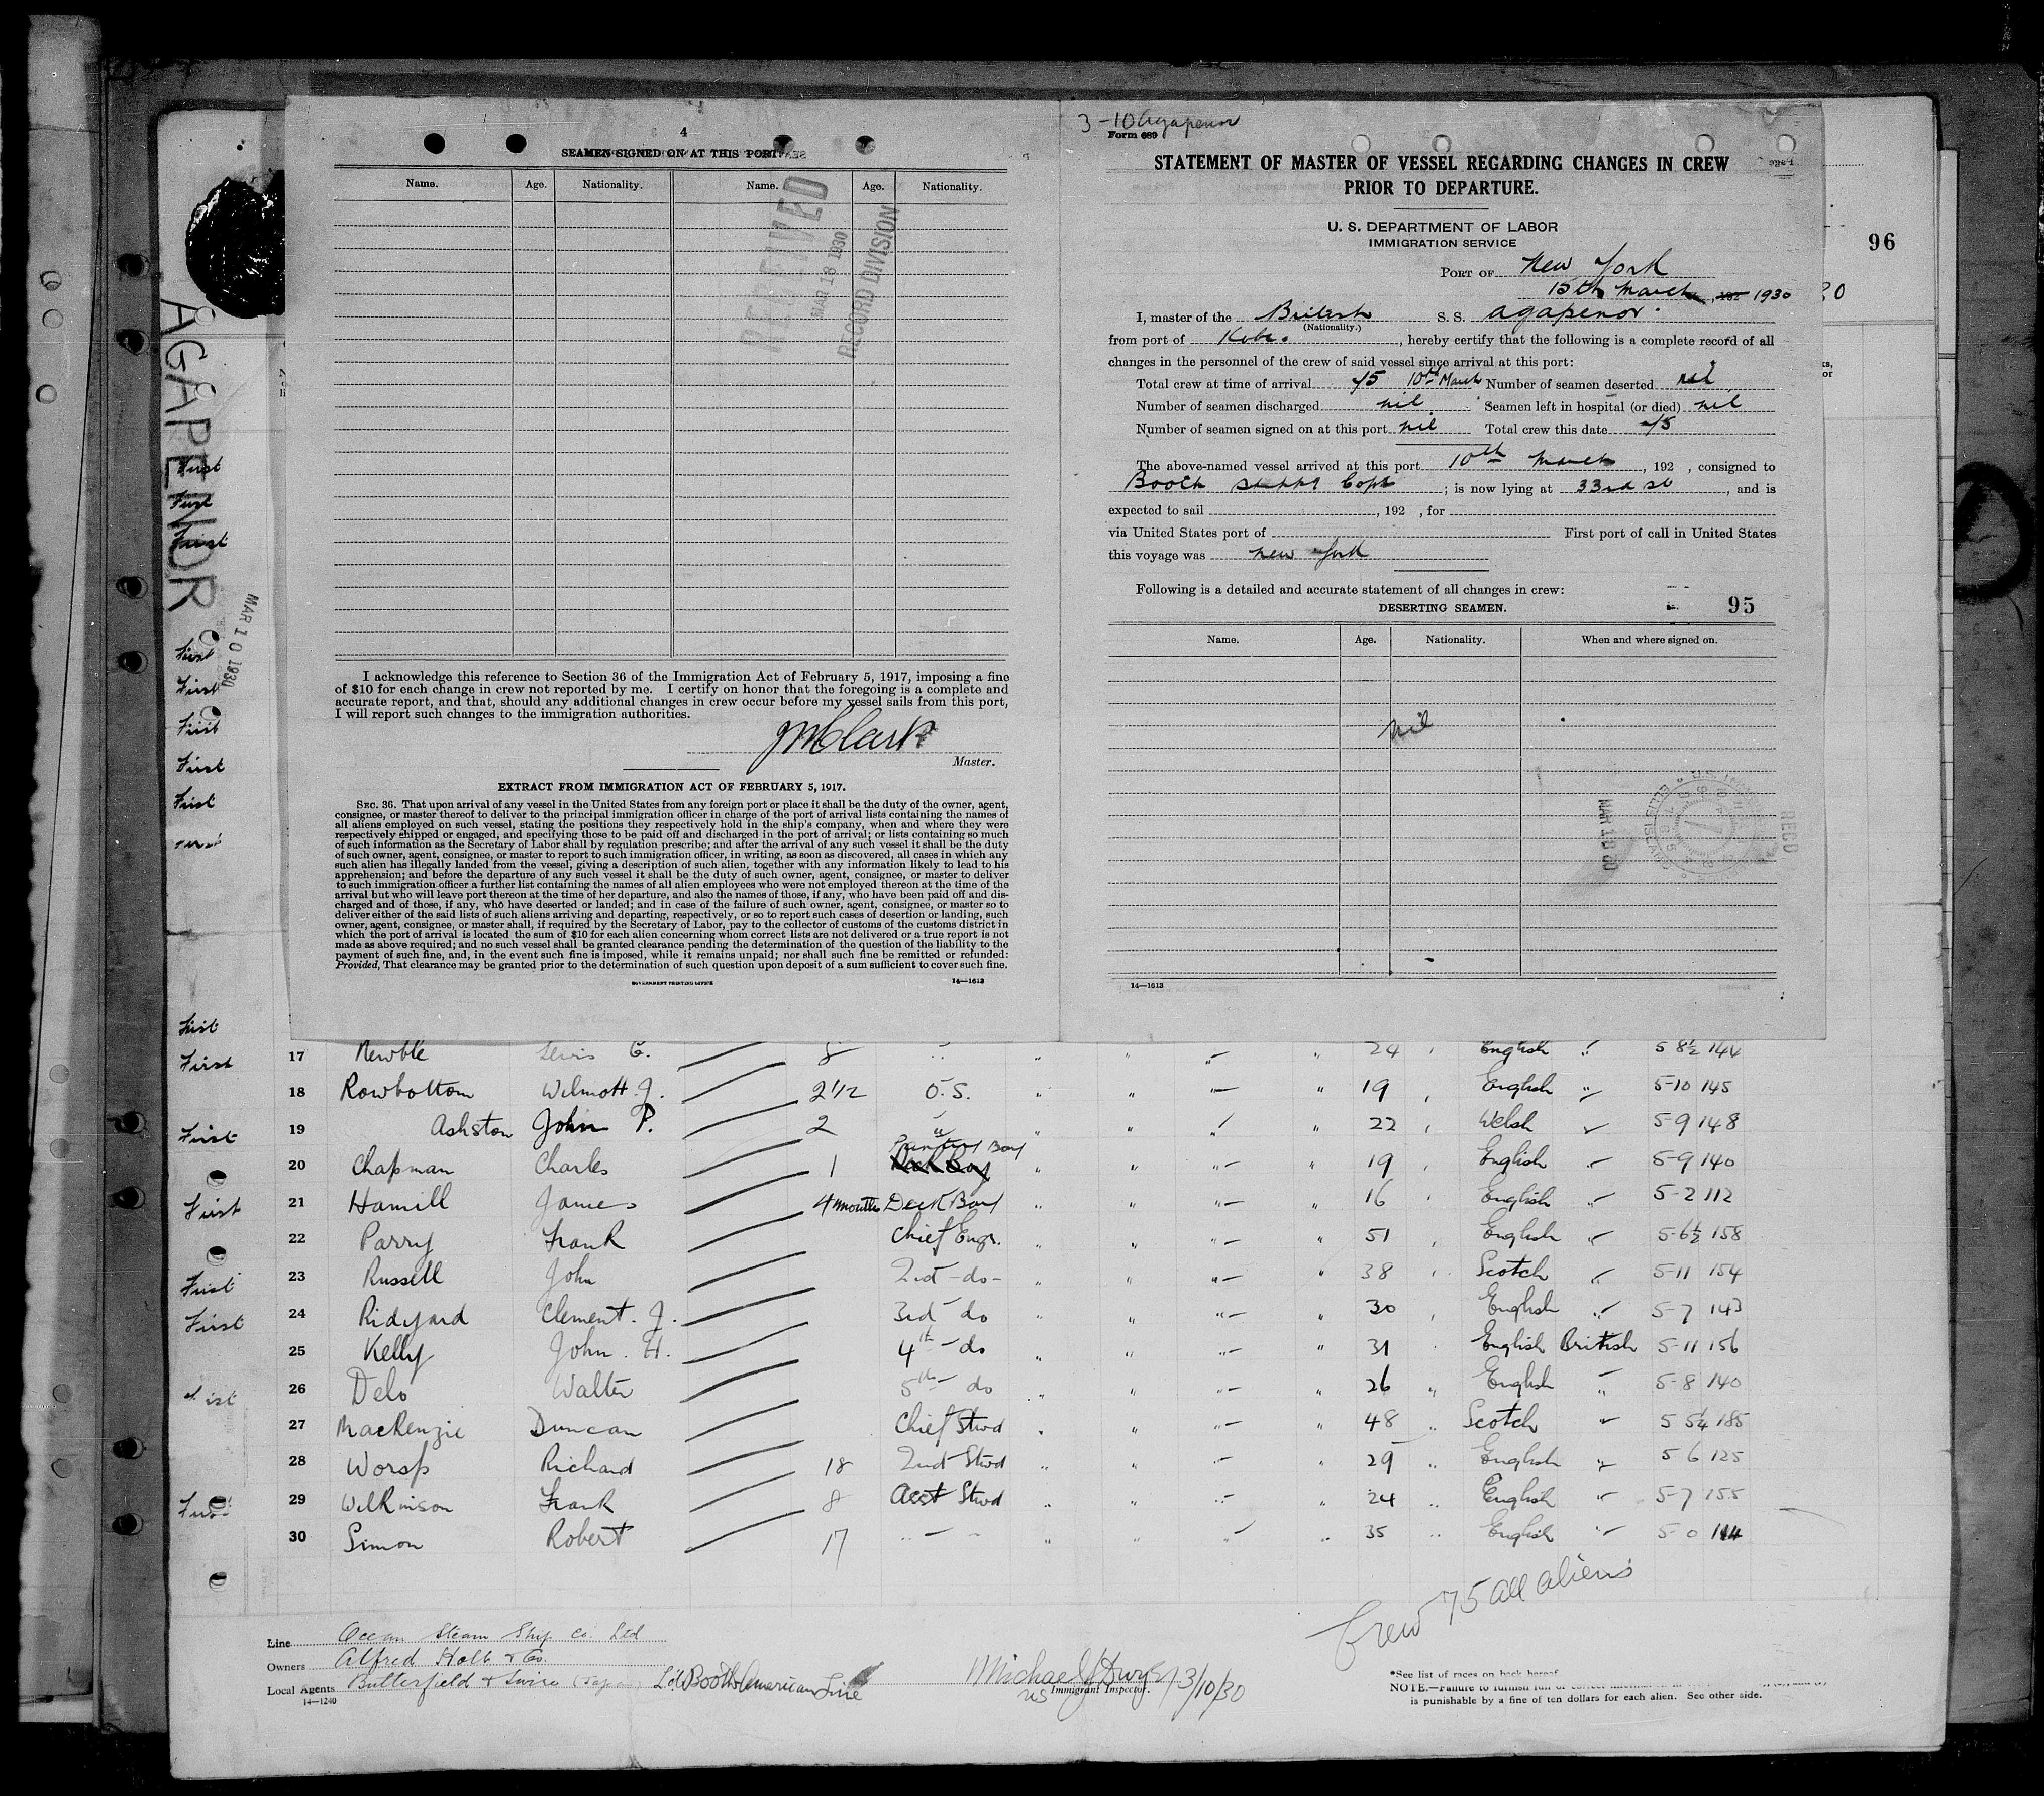 4
SEAMEN SIGNED ON AT THIS PORT
Name. Age. Nationality. Name. Age. Nationality.
RECEIVED
MAR 18 1930
RECORD DIVISION
I acknowledge this reference to Section 36 of the Immigration Act of February 5, 1917, imposing a fine
of $10 for each change in crew not reported by me. I certify on honor that the foregoing is a complete and
accurate report, and that, should any additional changes in crew occur before my vessel sails from this port,
I will report such changes to the immigration authorities.
Master.
EXTRACT FROM IMMIGRATION ACT OF FEBRUARY 5, 1917.
SEC. 36. That upon arrival of any vessel in the United States from any foreign port or place it shall be the duty of the owner, agent,
consignee, or master thereof to deliver to the principal immigration officer in charge of the port of arrival lists containing the names of
all aliens employed on such vessel, stating the positions they respectively hold in the ship's company, when and where they were
respectively shipped or engaged, and specifying those to be paid off and discharged in the port of arrival; or lists containing so much
of such information as the Secretary of Labor shall by regulation prescribe; and after the arrival of any such vessel it shall be the duty
of such owner, agent, consignee, or master to report to such immigration officer, in writing, as soon as discovered, all cases in which any
such alien has illegally landed from the vessel, giving a description of such alien, together with any information likely to lead to his
apprehension; and before the departure of any such vessel it shall be the duty of such owner, agent, consignee, or master to deliver
to such immigration officer a further list containing the names of all alien employees who were not employed thereon at the time of the
arrival but who will leave port thereon at the time of her departure, and also the names of those, if any, who have been paid off and dis-
charged and of those, if any, who have deserted or landed; and in case of the failure of such owner, agent, consignee, or master so to
deliver either of the said lists of such aliens arriving and departing, respectively, or so to report such cases of desertion or landing, such
owner, agent, consignee, or master shall, if required by the Secretary of Labor, pay to the collector of customs of the customs district in
which the port of arrival is located the sum of $10 for each alien concerning whom correct lists are not delivered or a true report is not
made as above required; and no such vessel shall be granted clearance pending the determination of the question of the liability to the
payment of such fine, and, in the event such fine is imposed, while it remains unpaid; nor shall such fine be remitted or refunded:
Provided, That clearance may be granted prior to the determination of such question upon deposit of a sum sufficient to cover such fine.
GOVERNMENT PRINTING OFFICE 14—1613
3-10 Agapenor
Form 689
STATEMENT OF MASTER OF VESSEL REGARDING CHANGES IN CREW
PRIOR TO DEPARTURE.
U. S. DEPARTMENT OF LABOR
IMMIGRATION SERVICE
PORT OF New York
15th March, 192 1930
I, master of the British S. S. Agapenor.
(Nationality.)
from port of Kobe, hereby certify that the following is a complete record of all
changes in the personnel of the crew of said vessel since arrival at this port:
Total crew at time of arrival 75 10th March Number of seamen deserted nil
Number of seamen discharged nil Seamen left in hospital (or died) nil
Number of seamen signed on at this port nil Total crew this date 75
The above-named vessel arrived at this port 10th March, 192 , consigned to
Booth ; is now lying at 33rd St, and is
expected to sail , 192 , for
via United States port of First port of call in United States
this voyage was New York
Following is a detailed and accurate statement of all changes in crew:
95
DESERTING SEAMEN.
Name. Age. Nationality. When and where signed on.
nil
MAR 18 30
RECD
14—1613
96
AGAPENOR
MAR 10 1930
First
First
First
First
First
First
First
First
First
First
First 17 Newble G. 8 24 English 5 8½ 144
18 Rowbottom Wilmott J. 2 1/2 O.S. 19 English 5-10 145
First 19 Ashston John P. 2 " 22 Welsh 5-9 148
20 Chapman Charles 1 Pantry Boy 19 English 5-9 140
First 21 Hamill James 4 months Deck Boy 16 English 5-2 112
22 Parry Frank Chief Engr. 51 English 5-6½ 158
First 23 Russell John 2nd -do- 38 Scotch 5-11 154
First 24 Ridyard Clement. J. 3rd do 30 English 5-7 143
25 Kelly John. H. 4th do 31 English British 5-11 156
First 26 Delo Walter 5th do 26 English 5-8 140
27 MacKenzie Duncan Chief Stwd 48 Scotch 5 5¼ 185
28 Worsp Richard 18 2nd Stwd 29 English 5 6 125
First 29 Wilkinson Frank 8 Asst Stwd 24 English 5-7 155
30 Simon Robert 17 " 35 English 5-0 114
Crew 75 all aliens
Line Ocean Steam Ship Co. Ltd
Owners Alfred Holt & Co.
Local Agents Butterfield & Swire (Japan) Ltd Booth American Line
14—1240
Michael J Dwyer 3/10/30
US Immigrant Inspector.
*See list of races on back hereof
NOTE.—Failure to furnish full or correct
is punishable by a fine of ten dollars for each alien. See other side.